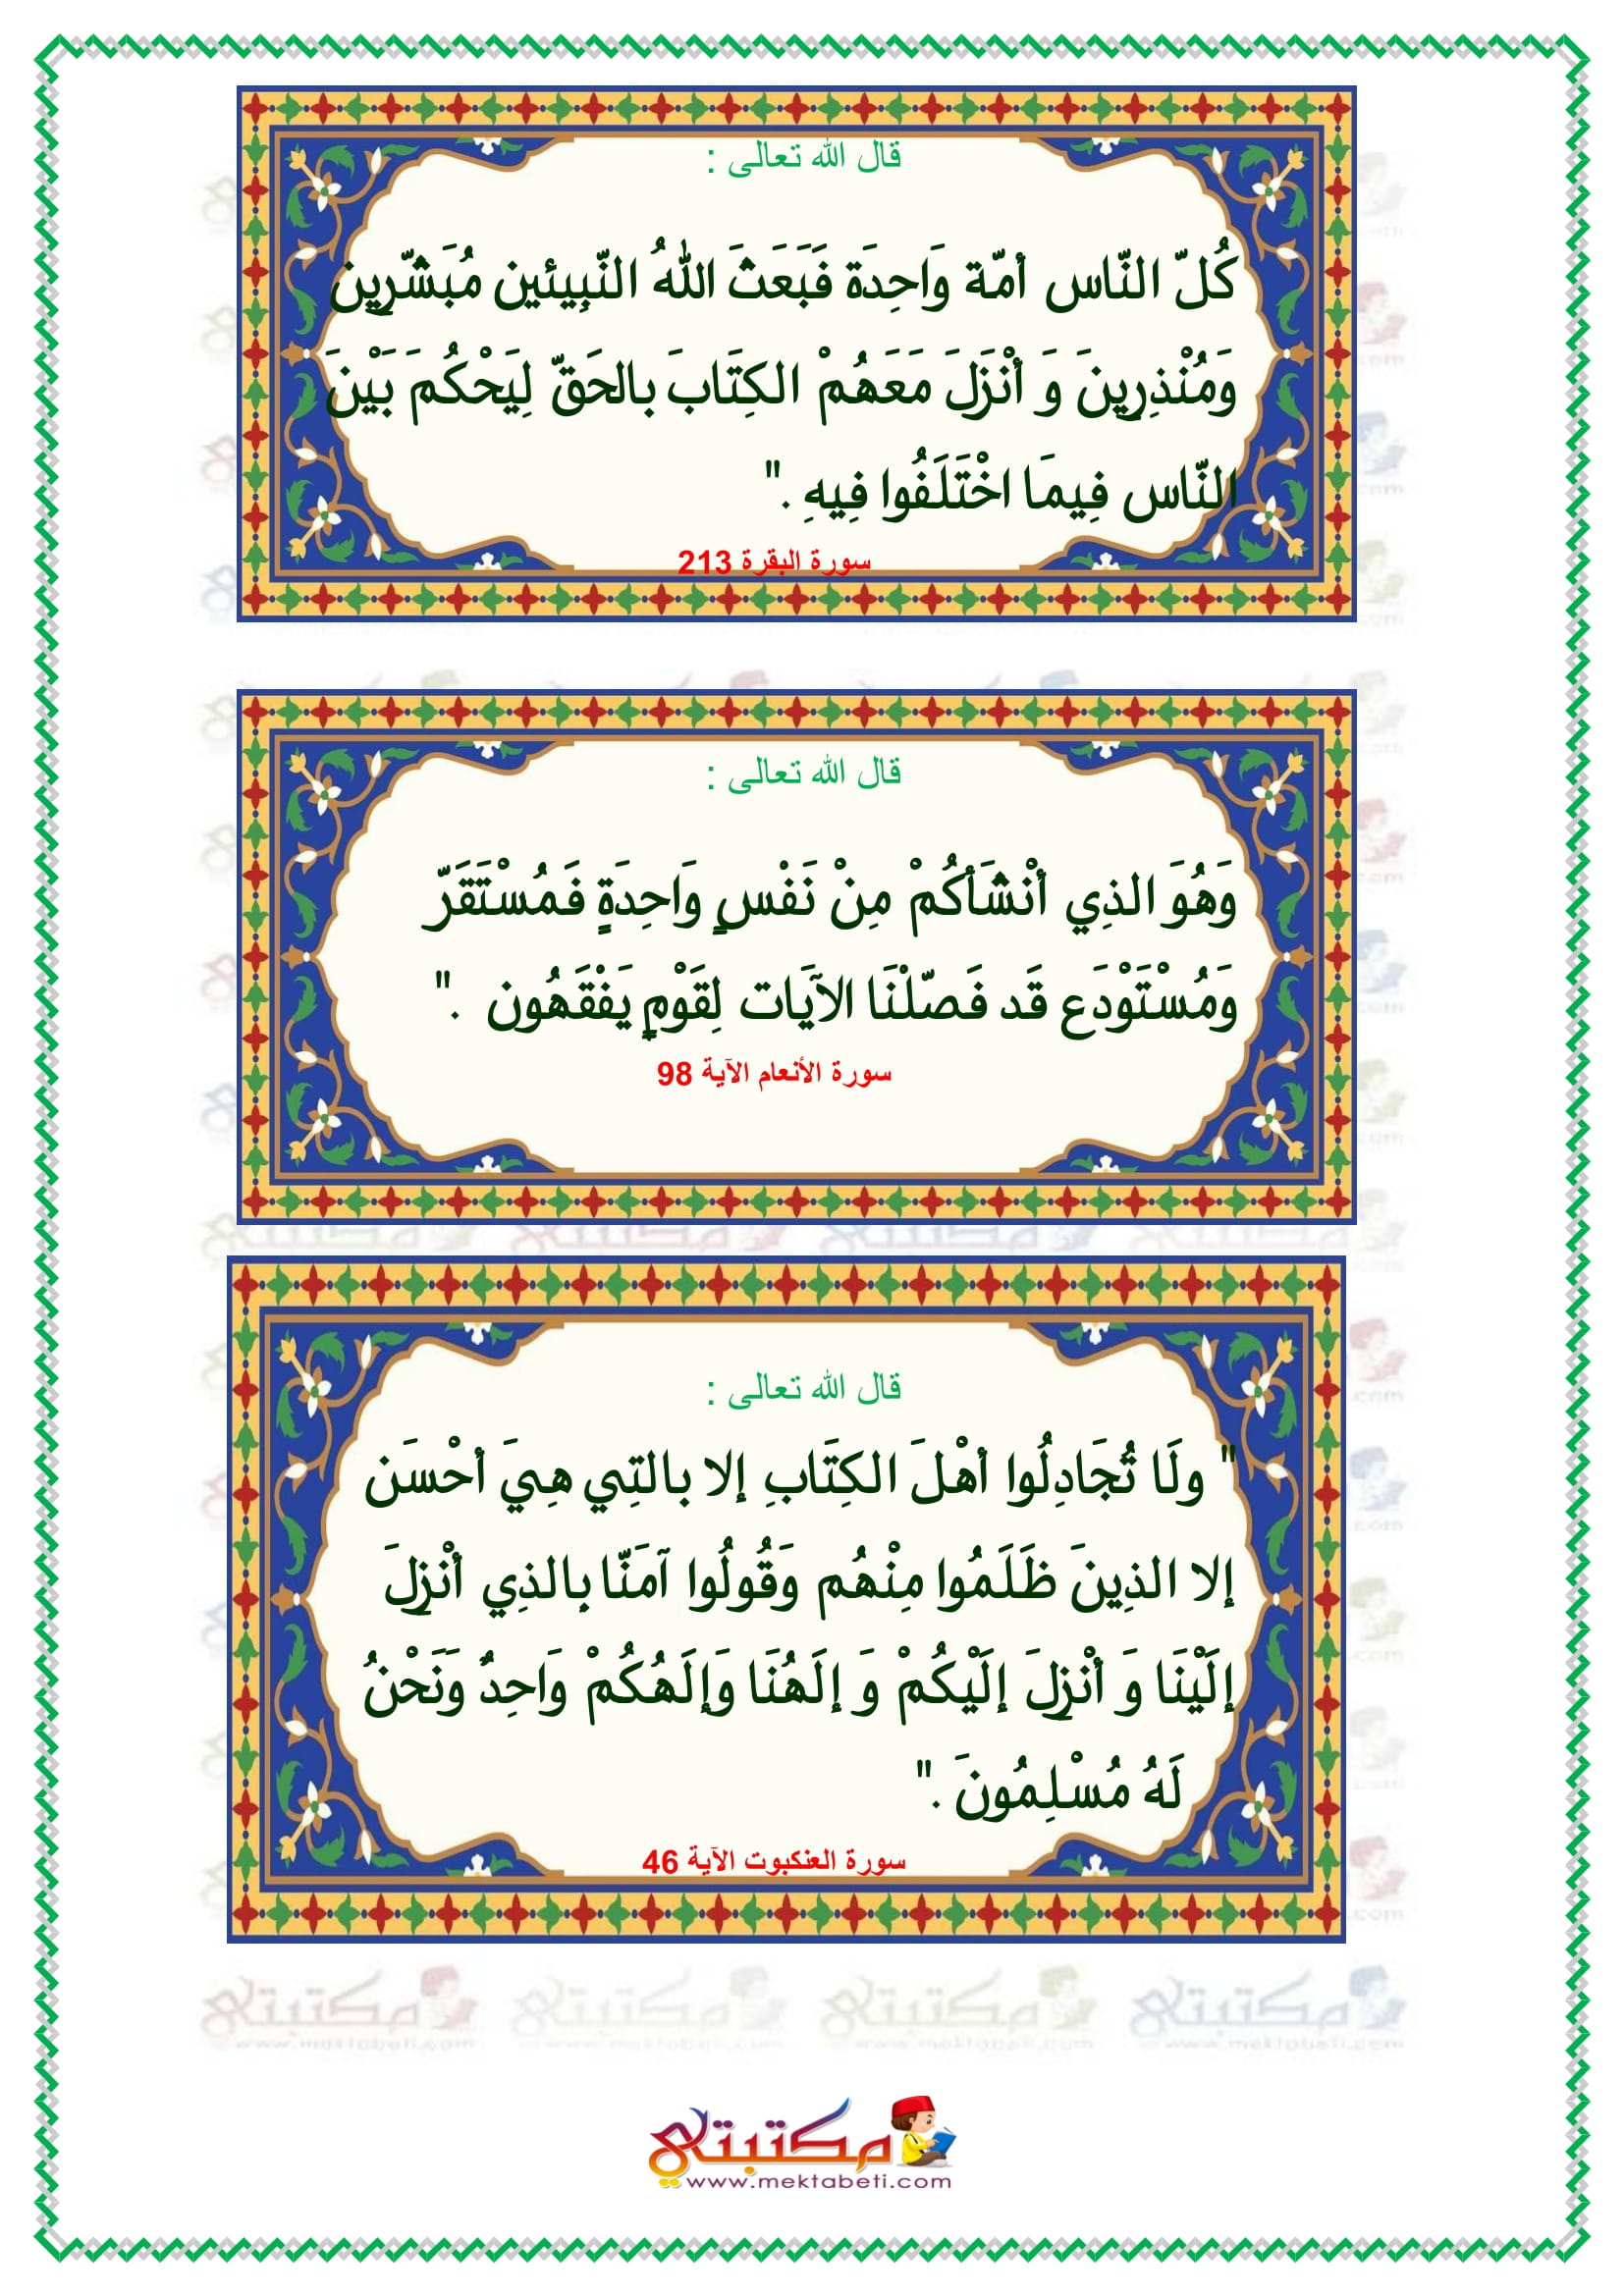 قال الله تعالى :
كُلّ النّاس أمّة وَاحِدَة فَبَعَثَ اللهُ النّبِيئين مُبَشّرِين
وَمُنْذِرِينَ وَ أنْزَلَ مَعَهُمْ الكِتَابَ بالحَقّ لِيَحْكُمَ بَيْنَ
النّاس فِيمَا اخْتَلَفُوا فِيهِ ."
سورة البقرة 213
قال الله تعالى :
وَهُوَ الذِي أنْشَأكُمْ مِنْ نَفْسٍ وَاحِدَةٍ فَمُسْتَقَرّ
وَمُسْتَوْدَع قَد فَصّلْنَا الآيَات لِقَوْمٍ يَفْقَهُون ."
سورة الأنعام الآية 98
قال الله تعالى :
" ولَا تُجَادِلُوا أهْلَ الكِتَابِ إلا بالتِي هِيَ أحْسَن
إلا الذِينَ ظَلَمُوا مِنْهُم وَقُولُوا آمَنّا بِالذِي أنْزِلَ
إلَيْنَا وَ أنْزِلَ إلَيْكُمْ وَ إلَهُنَا وَإلَهُكُمْ وَاحِدٌ وَنَحْنُ
لَهُ مُسْلِمُونَ ."
سورة العنكبوت الآية 46
مكتبتي
www.mektabeti.com